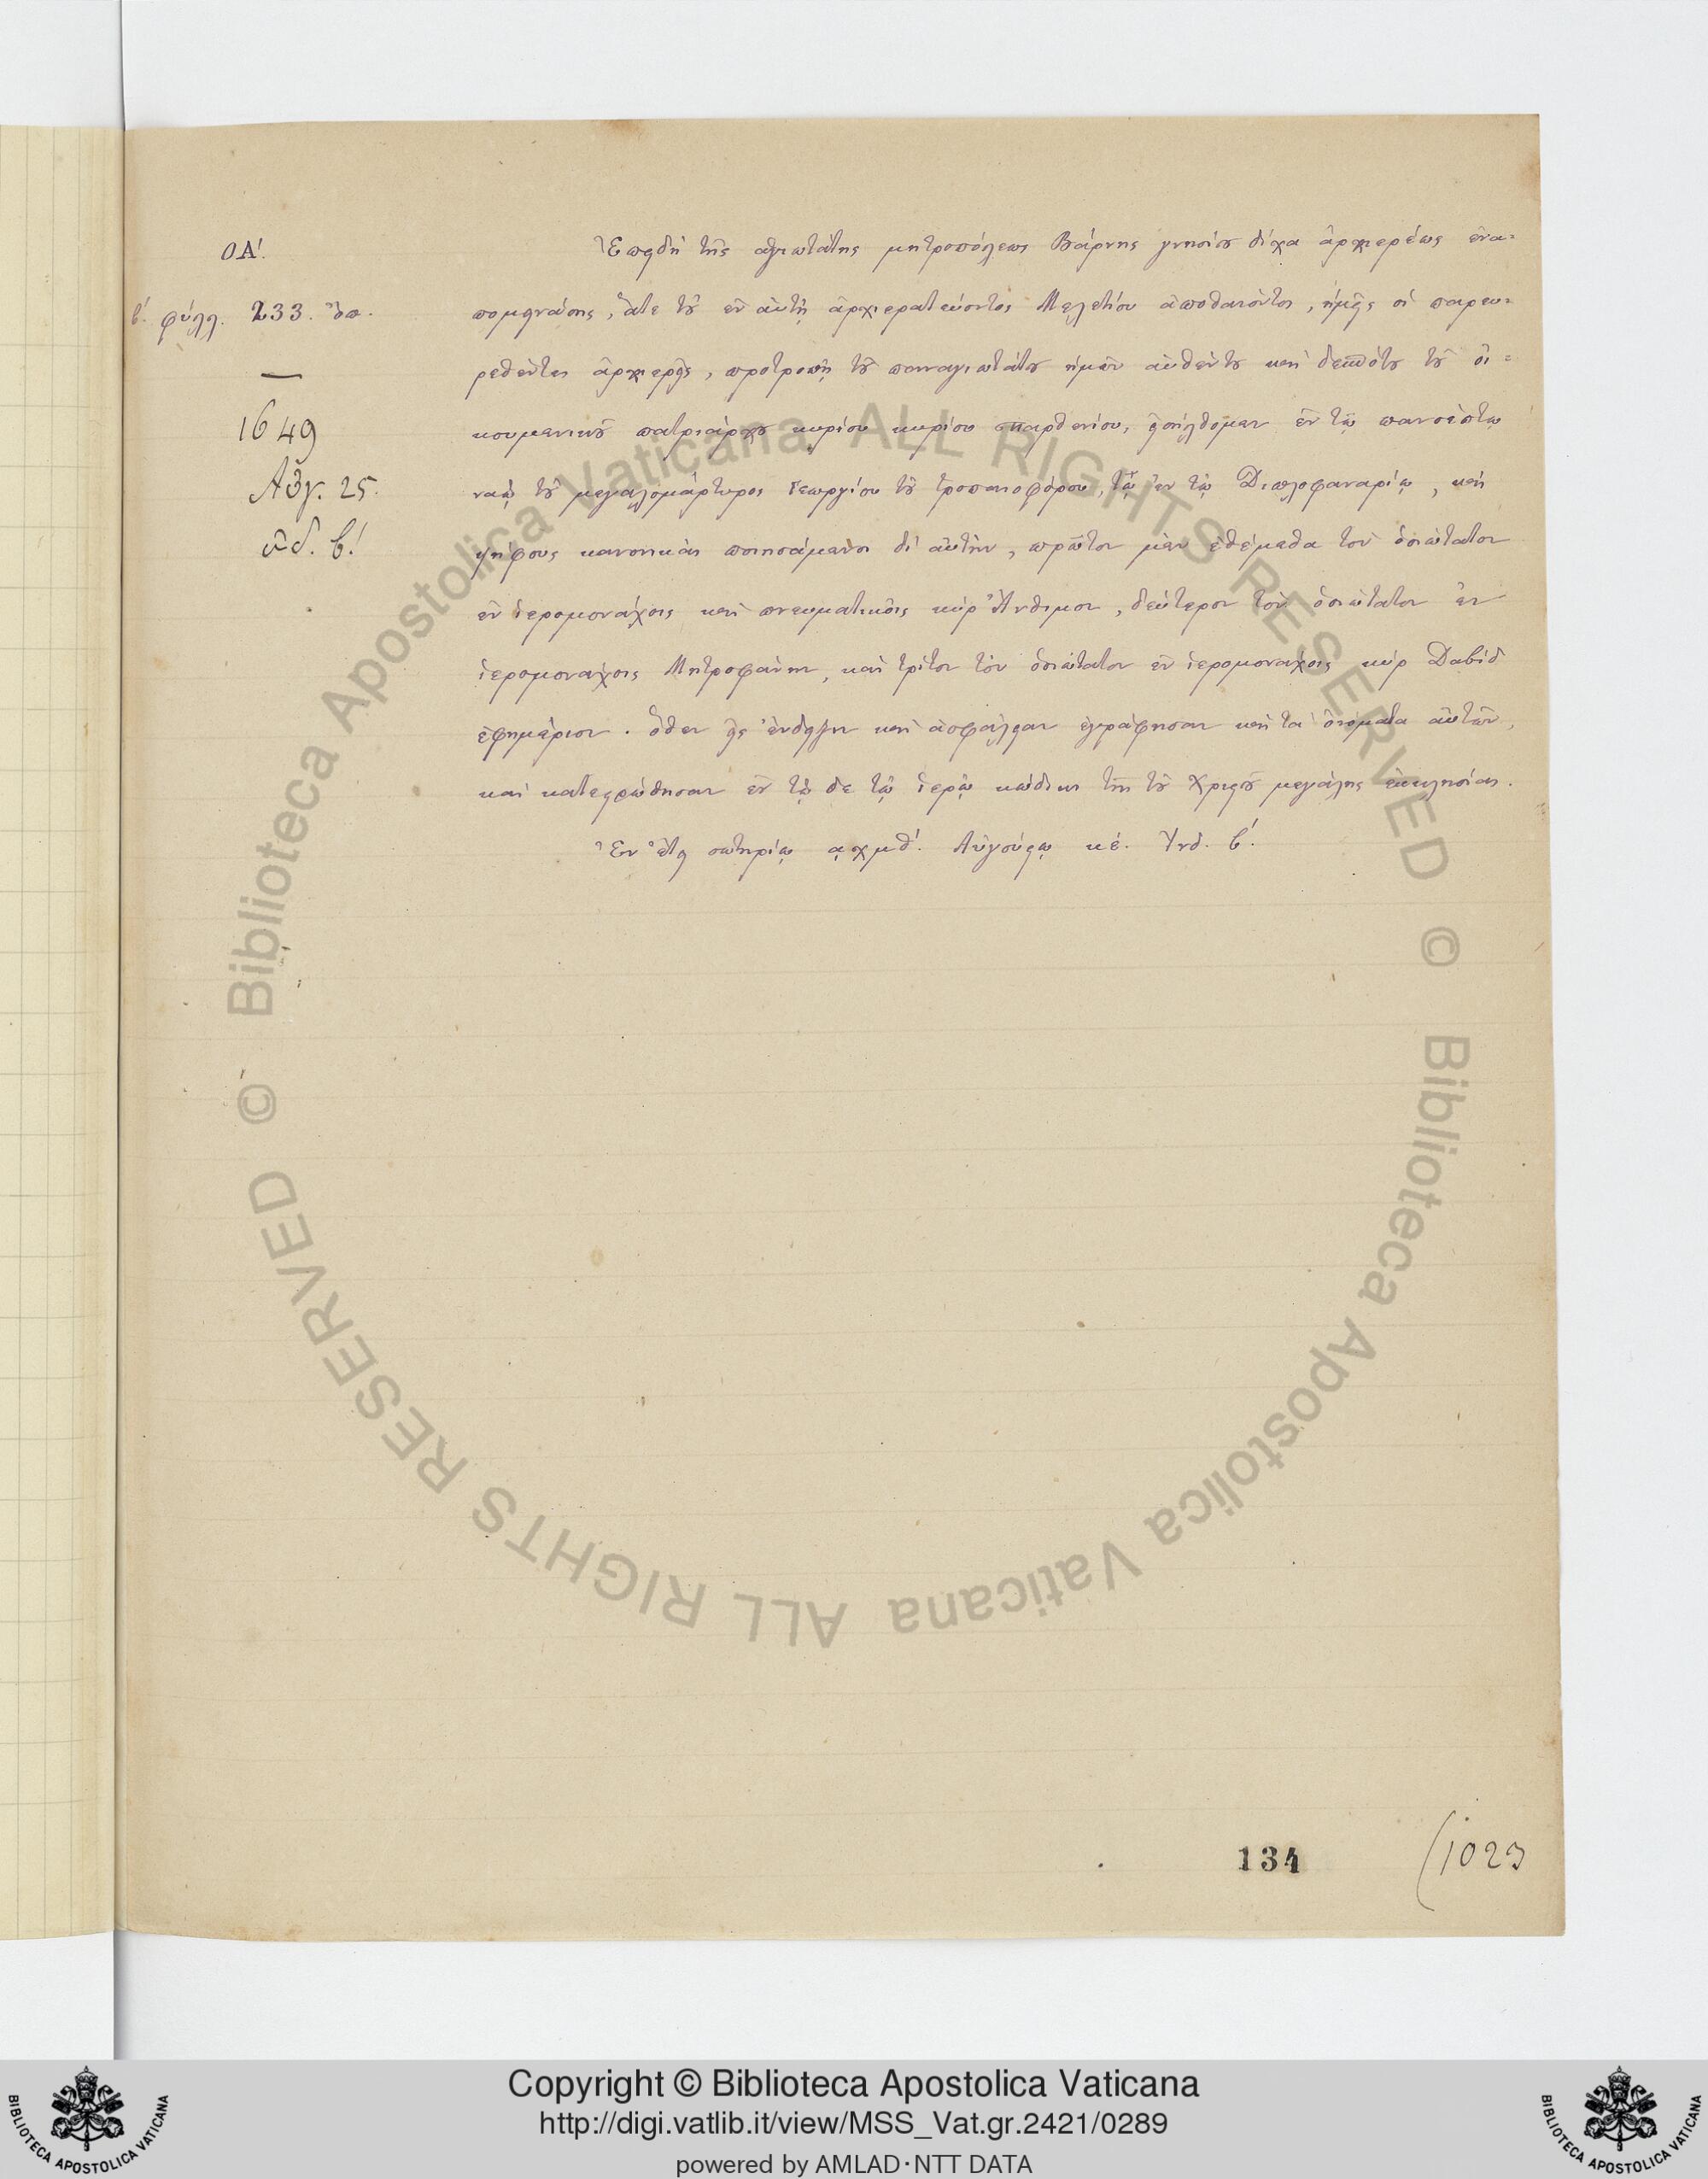 ΟΑ΄.
β΄. φύλλ. 233. ὄπ.
1649
Αὔγ. 25.
ἰνδ. β΄.
Ἐπειδὴ τῆς ἁγιωτάτης μητροπόλεως Βάρνης γνησίου δίχα ἀρχιερέως ἐνα-
πομεινάσης, ἅτε τοῦ ἐν αὐτῇ ἀρχιερατεύοντος Μελετίου ἀποθανόντος, ἡμεῖς οἱ παρευ-
ρεθέντες ἀρχιερεῖς, προτροπῇ τοῦ παναγιωτάτου ἡμῶν αὐθέντου καὶ δεσπότου τοῦ οἰ-
κουμενικοῦ πατριάρχου κυρίου κυρίου Παρθενίου, εἰσήλθομεν ἐν τῷ πανσέπτῳ
ναῷ τοῦ μεγαλομάρτυρος Γεωργίου τοῦ τροπαιοφόρου, τῷ ἐν τῷ Διπλοφαναρίῳ, καὶ
ψήφους κανονικὰς ποιησάμενοι δι' αὐτὴν, πρῶτον μὲν ἐθέμεθα τὸν ὁσιώτατον
ἐν ἱερομονάχοις καὶ πνευματικοῖς κὺρ Ἄνθιμον, δεύτερον τὸν ὁσιώτατον ἐν
ἱερομονάχοις Μητροφάνην, καὶ τρίτον τὸν ὁσιώτατον ἐν ἱερομονάχοις κὺρ Δαβὶδ
ἐφημέριον. ὅθεν εἰς ἔνδειξιν καὶ ἀσφάλειαν ἐγράφησαν καὶ τὰ ὀνόματα αὐτῶν,
καὶ κατεστρώθησαν ἐν τῷ δε τῷ ἱερῷ κώδικι τῆς τοῦ Χριστοῦ μεγάλης ἐκκλησίας.
Ἐν ἔτει σωτηρίῳ αχμθ΄. Αὐγούστῳ κέ. Ἰνδ. β΄.
134
(1023
Biblioteca Apostolica Vaticana ALL RIGHTS RESERVED ©
Biblioteca Apostolica Vaticana ALL RIGHTS RESERVED ©
Copyright © Biblioteca Apostolica Vaticana
http://digi.vatlib.it/view/MSS_Vat.gr.2421/0289
powered by AMLAD·NTT DATA
BIBLIOTECA APOSTOLICA VATICANA
BIBLIOTECA APOSTOLICA VATICANA